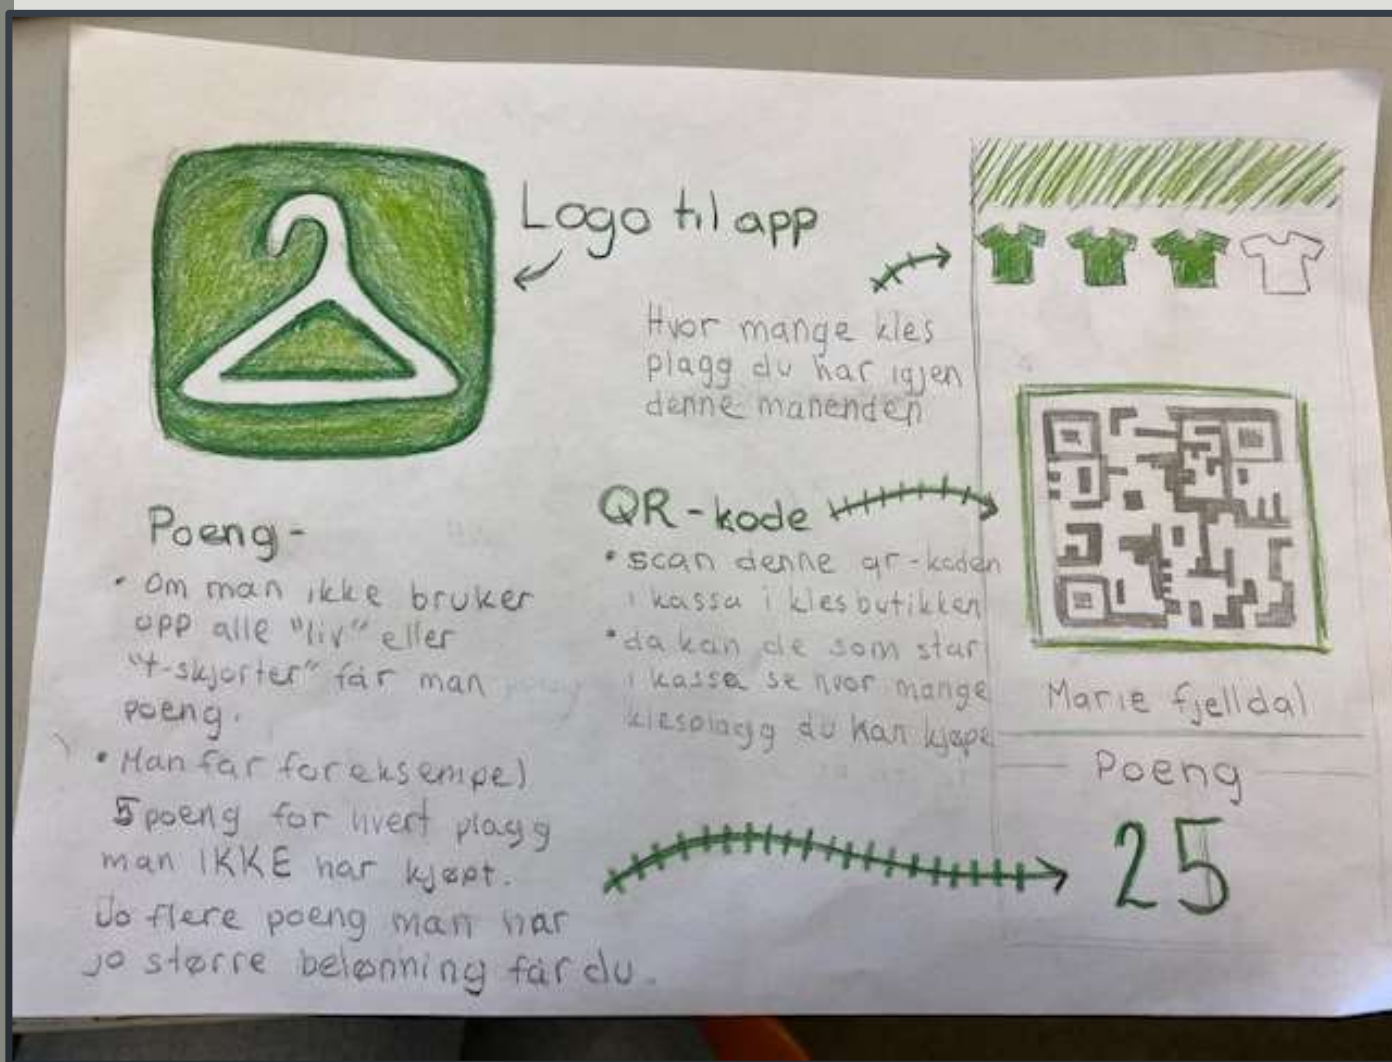 Logo til app
Hvor mange kles
plagg du har igjen
denne manenden
Poeng-
• Om man ikke bruker
opp alle "liv" eller
"t-skjorter" får man
poeng.
• Man får for eksempel
5 poeng for hvert plagg
man IKKE har kjøpt.
Jo flere poeng man har
jo større belønning får du.
QR-kode
• scan denne qr-koden
i kassa i klesbutikken
• da kan de som star
i kassa se hvor mange
klesplagg du kan kjøpe
Marie fjelldal
Poeng
25